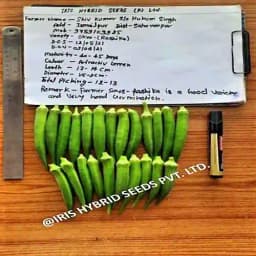 IRIS HYBRID SEEDS PVT. LTD
Farmer Name - Shiv Kumar S/o Hukam Singh
Add - Jamalpur Dist - Saharanpur
Mob -
Variety - Okra (Rashika)
D.O.S - 12/05/21
Maturity - 40-45 Days
Colour - Attractive Green
Length - 12-14 Cm
Diameter -
Total Picking - 12-13
Remark - Farmer Says - Rashika is a Good Variety
and Very Good Germination.
@IRIS HYBRID SEEDS PVT. LTD.